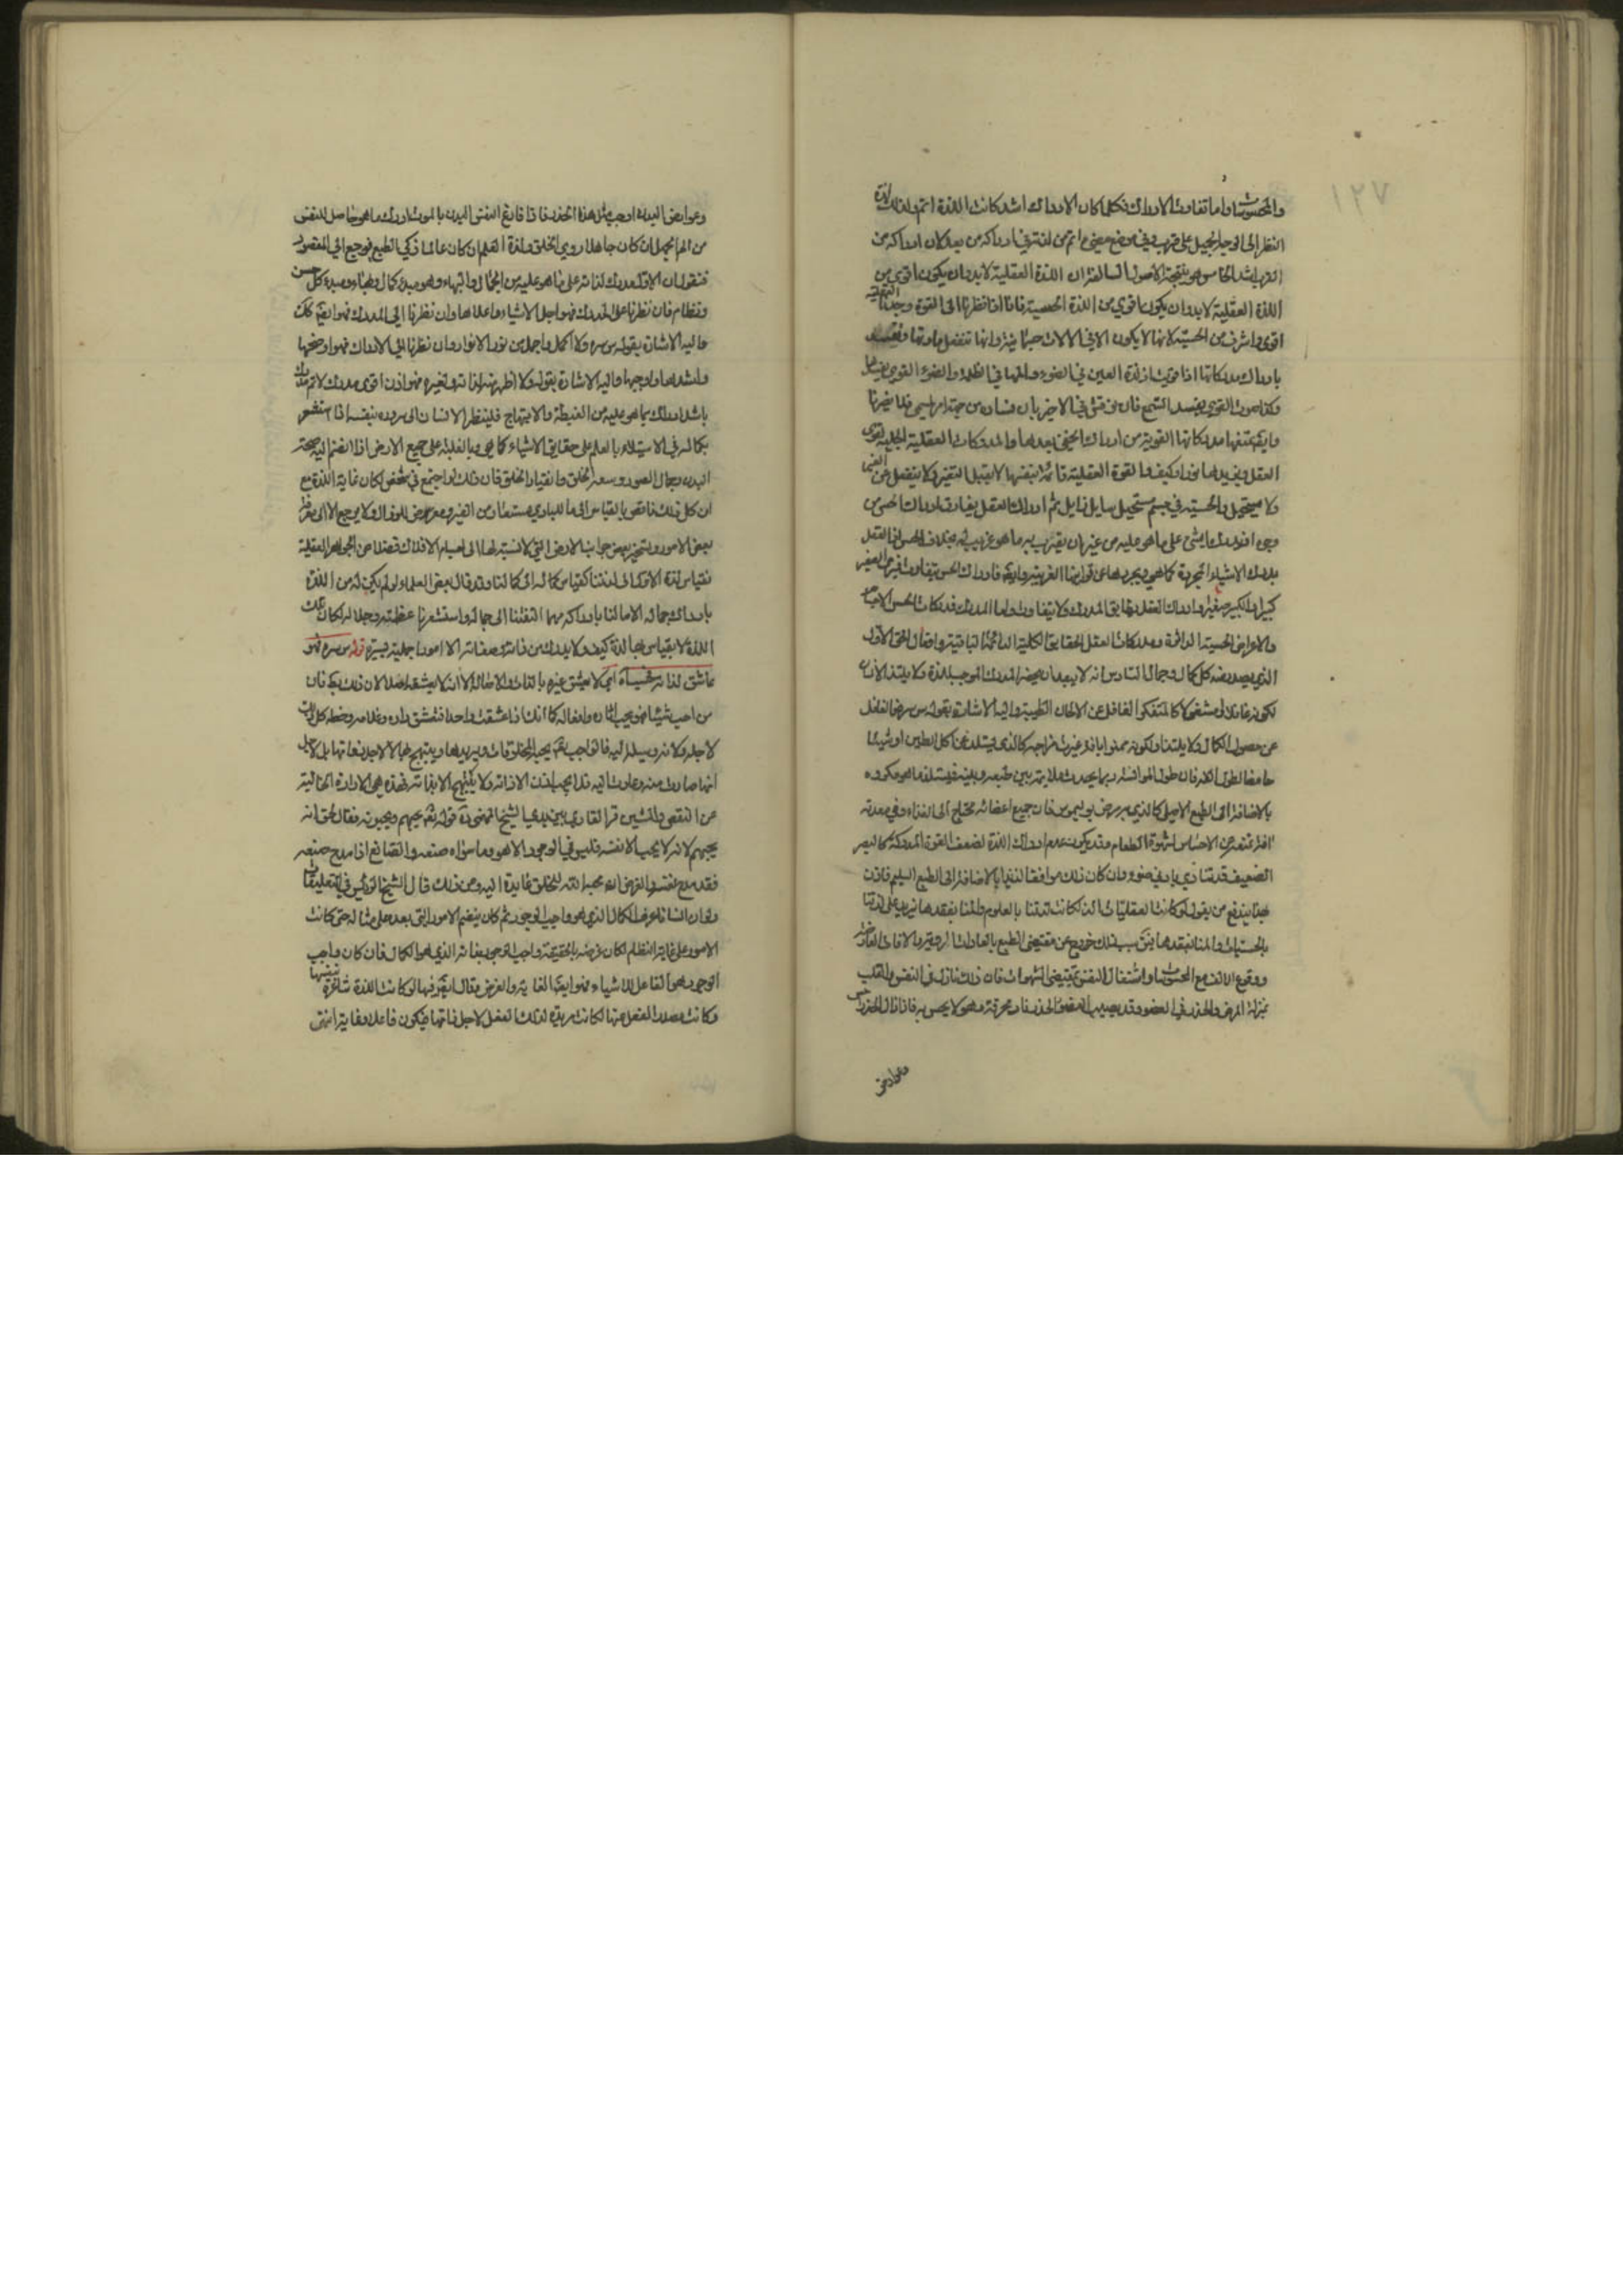 والمحسوسات واما تفاوت الادراك فكلما كان الادراك اشد كانت اللذة اتم ولذلك لذة
النظر الى الوجه الجميل على قرب وفي موضع مضيء اتم من لذته في ادراكه من بعد لان ادراكه من
القرب اشد الخامس وهو نتيجة الاصول السالفة ان اللذة العقلية لا بد وان يكون اقوى من
اللذة العقلية لا بد وان يكون اقوى من اللذة الحسية فانا اذا نظرنا الى القوة وجدنا العقلية
اقوى واشرف من الحسية لانها لا يكون الا في الالات جسمانية وانها تنفعل
بادراك مدركاتها اذا قويت اذ لذة العين في الضوء والمها في الظلمة والضوء القوي يفسدها
وكذا صوت القوي يفسد السمع
مدركاتها القوية من ادراك الخفي بعدها والمدركات العقلية الجليلة تقوى
العقل ويزيدها نورا وكيف والقوة العقلية قائمة بنفسها لا تقبل التغير
ولا يستحيل والحسية في جسم مستحيل سايل زايل ثم ادراك العقل يفارق ادراك الحس من
وجوه اذ يدرك الشيء على ما هو عليه من غير ان يقترن به ما هو غريب له بخلاف الحس اذ العقل
يدرك الاشياء المجردة كما هي ويجردها عن قرائنها الغريبة وادراك الحس يتفاوت فيرى الصغير
كبيرا والكبير صغيرا وادراك العقل يطابق المدرك ولا يتفاوت واما المدرك فمدركات الحس الاجسام
والاعراض الحسية الزائلة ومدركات العقل الحقايق الكلية الدائمة الباقية وافعال الحق الاول
الذي يصدر منه كل كمال وجمال السادس انه لا يبعد ان يحضر المدرك الموجب للذة ولا يلتذ الانسان
لكونه غافلا او مشغولا كالمتفكر الغافل عن الالحان الطيبة واليه الاشارة بقوله
عن حصول الكمال ولا يلتذ او لكونه ممنوا بافة غيرت مزاجه كالذي يستلذ من اكل الطين او شيئا
حامضا لطول الفه فان طول الموانسة ربما يحدث ملايمة بين طبعه وبينه فيستلذ ما هو مكروه
بالاضافة الى الطبع الاصلي كالذي به مرض بوليموس فان جميع اعضائه محتاج الى الغذاء وفي معدته
افة تمنعه عن الاحساس لشهوة الطعام وقد يكون عدم ادراك اللذة لضعف القوة المدركة كالبصر
الضعيف قد يتاذى بادنى ضوء وان كان ذلك موافقا لذيذا بالاضافة الى الطبع السليم فاذن
بهذا يندفع من يقول لو كانت العقليات الذ لكانت لذتنا بالعلوم والمنا بفقدها يزيد على لذتنا
بالحسيات والمنا بفقدها سبب ذلك خروج عن مقتضى الطبع بالعادات الردية والافات العارضة
ووقوع الالف مع المحسوسات واشتغال النفس بمقتضى الشهوات فان ذلك نازل في النفس والقلب
بمنزلة المرض والخدر في العضو وقد يصيب العضو الخدر نار محرقة وهو لا يحس به فاذا زال الخدر احس
وعوارض
وعوارض البدن اوجب مثل هذا الخدر فاذا فارق النفس البدن بالموت ادرك ما هو حاصل للنفس
من الم الجهل ان كان جاهلا ردي الخلق ولذة العلم ان كان عالما زكي الطبع فنرجع الى المقصود
فنقول ان الاول مدرك لذاته على ما هو عليه من الجمال والبهاء وهو مبدء كل جمال وبهاء ومبدء كل حسن
ونظام فان نظرنا الى المدرك فهو اجل الاشياء واعلاها وان نظرنا الى المدرك فهو ايضا كذلك
واليه الاشارة بقوله س سره ولا اكمل واجمل من نور الانوار وان نظرنا الى الادراك فهو اوضحها
واشدها واوجبها واليه الاشارة بقوله ولا اظهر منه لذاته ولغيره فهو اذن اقوى مدرك لاتم مدرك
باشد ادراك بما هو عليه من الغبطة والابتهاج فلينظر الانسان الى سروره بنفسه اذا استشعر
بكماله في الاستيلاء بالعلم على حقايق الاشياء كما هي وبالغلبة على جميع الارض اذا انضم اليه صحة
البدن وجمال الصورة وسعة الخلق وانقياد الخلق فان ذلك لو اجتمع في شخص لكان غاية اللذة مع
ان كل ذلك ناقص بالقياس الى ما للباري مستفاد من الغير ومعرض للزوال ولا يرجع الا الى
بعض الامور وتسخير بعض جوانب الارض التي لا نسبة لها الى اجسام الافلاك فضلا من الجواهر العقلية
فقياس لذة الاول الى لذتنا كقياس كماله الى كمالنا وقد قال بعض العلماء لو لم يكن له من اللذة
بادراك جماله الا ما لنا بادراكه مهما التفتنا الى جماله واستشعرنا عظمته وجلاله لكان تلك
اللذة لا يقياس بها لذة كيف ولا يدرك من ذاته وصفاته الا امورا جملية يسيرة قوله س سره فهو
عاشق لذاته فحسب اه اي لا يعشق غيره بالذات والاصالة لا انه لا يعشقه اصلا لان ذلك بط فان
من احب شيئا فهو يحب اثاره وافعاله كما انك اذا عشقت واحدا فتعشق داره وغلامه وخطه كل ذلك
لاجله ولانه وسيلة اليه فالواجب تعم يحب المخلوقات ويريدها ويبتهج بها لا لاجل ذواتها بل لاجل
انها صادرة منه وعادت اليه فلا يحب اذن الا ذاته ولا يبتهج الا بذاته فهذه هي الارادة الخالية
عن النقص والشين قرا القاري بين يدي الشيخ المهنى ره قوله تعم يحبهم ويحبونه فقال لحق انه
يحبهم لانه لا يحب الا نفسه فليس في الوجود الا هو وما سواه صنعه والصانع اذا مدح صنعه
فقد مدح نفسه والغرض انه محبة الله للخلق عايدة اليه ومن ذلك قال الشيخ الرئيس في التعليقات
ولو ان انسانا عرف الكمال الذي هو واجب الوجود ثم كان ينظم الامور التي بعده على مثاله حتى كانت
الامور على غاية النظام لكان غرضه بالحقيقة واجب الوجود بذاته الذي هو الكمال فان كان واجب
الوجود هو الفاعل للاشياء فهو ايضا الغاية والغرض وقال ايضا فيها لو كانت اللذة شاعرة بنفسها
وكانت مصدر الفعل منها لكانت مريدة لذلك الفعل لاجل ذاتها فيكون فاعلا وغاية انتهى